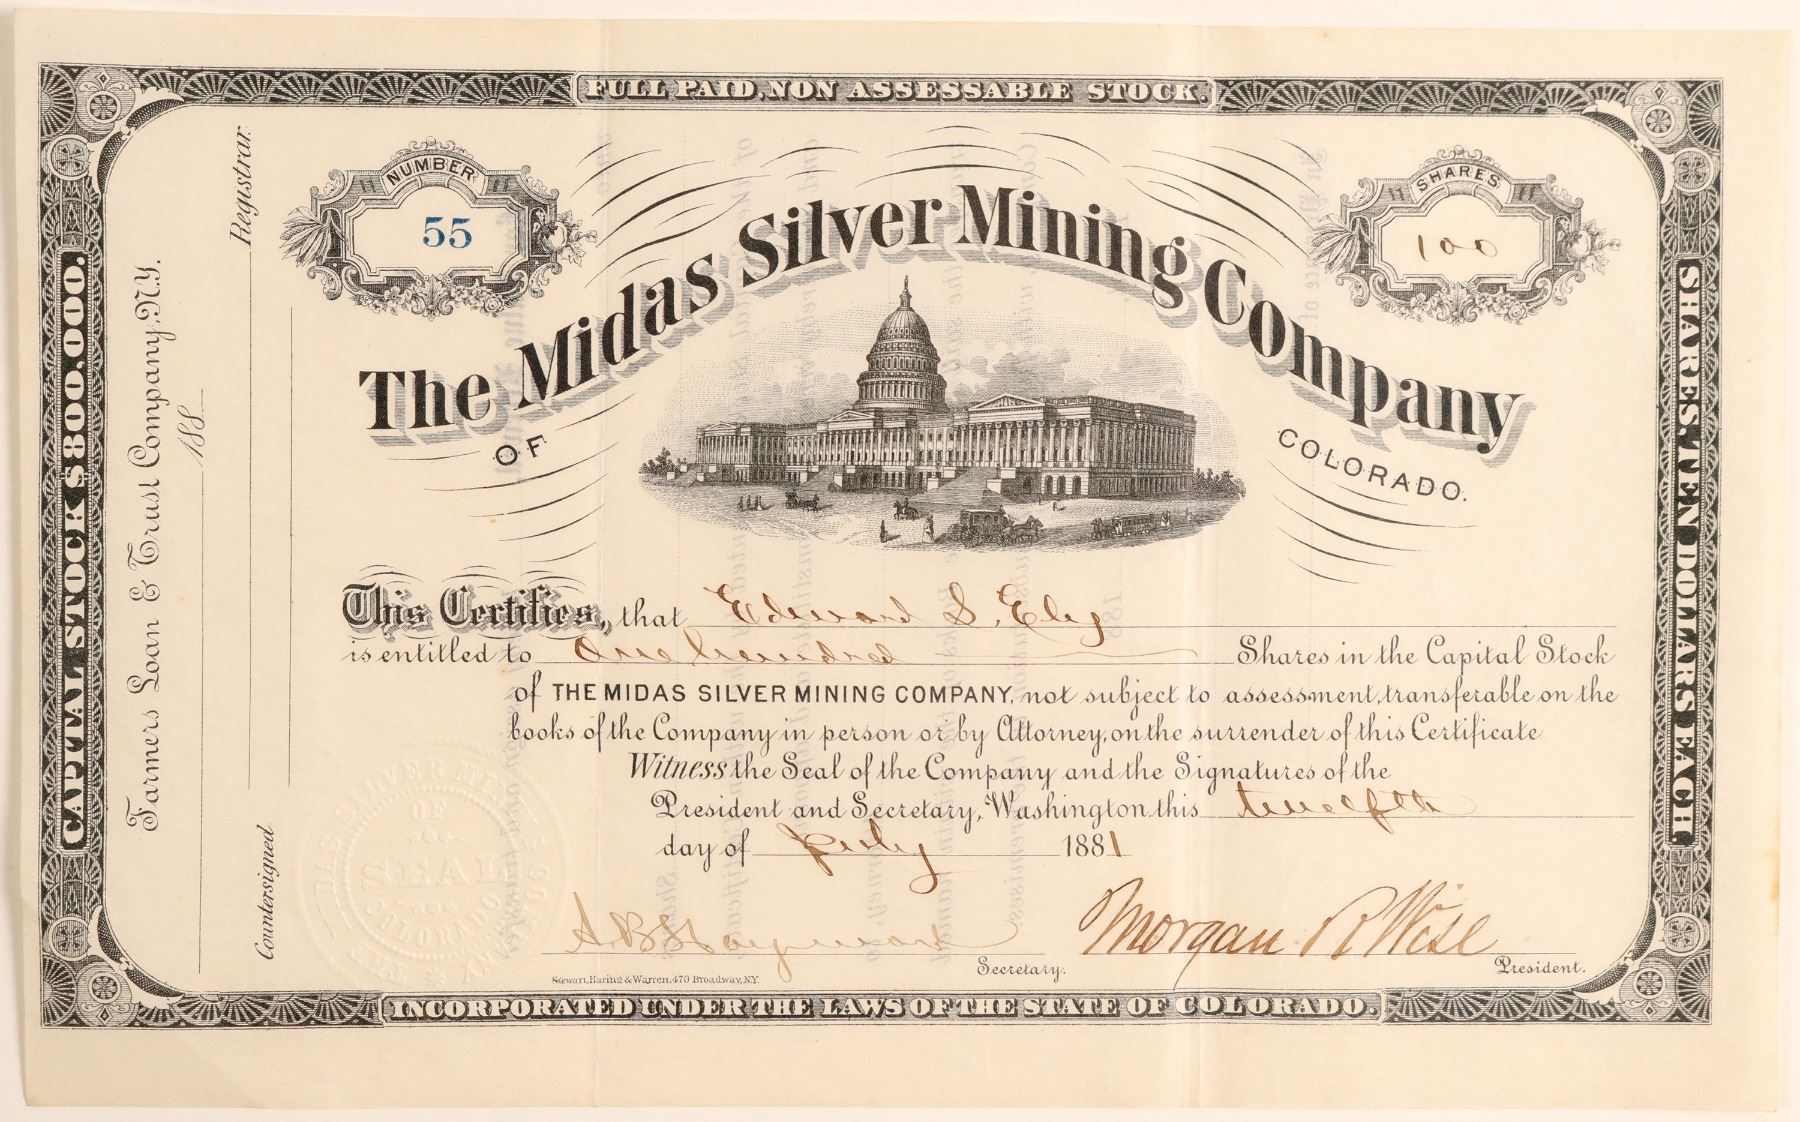 FULL PAID, NON ASSESSABLE STOCK.
NUMBER
55
SHARES
100
The Midas Silver Mining Company
OF
COLORADO.
This Certifies, that Edward S. Ely
is entitled to One hundred Shares in the Capital Stock
of THE MIDAS SILVER MINING COMPANY, not subject to assessment, transferable on the
books of the Company in person or by Attorney, on the surrender of this Certificate
Witness the Seal of the Company and the Signatures of the
President and Secretary, Washington this twelfth
day of July 1881
A B Hayward
Secretary.
Morgan R Wise
President.
Stewart, Haring & Warren, 470 Broadway, N.Y.
INCORPORATED UNDER THE LAWS OF THE STATE OF COLORADO.
CAPITAL STOCK $800,000.
SHARES, TEN DOLLARS EACH.
Farmers Loan & Trust Company, N.Y.
188
Registrar.
Countersigned
THE MIDAS SILVER MINING COMPANY
OF
SEAL
COLORADO